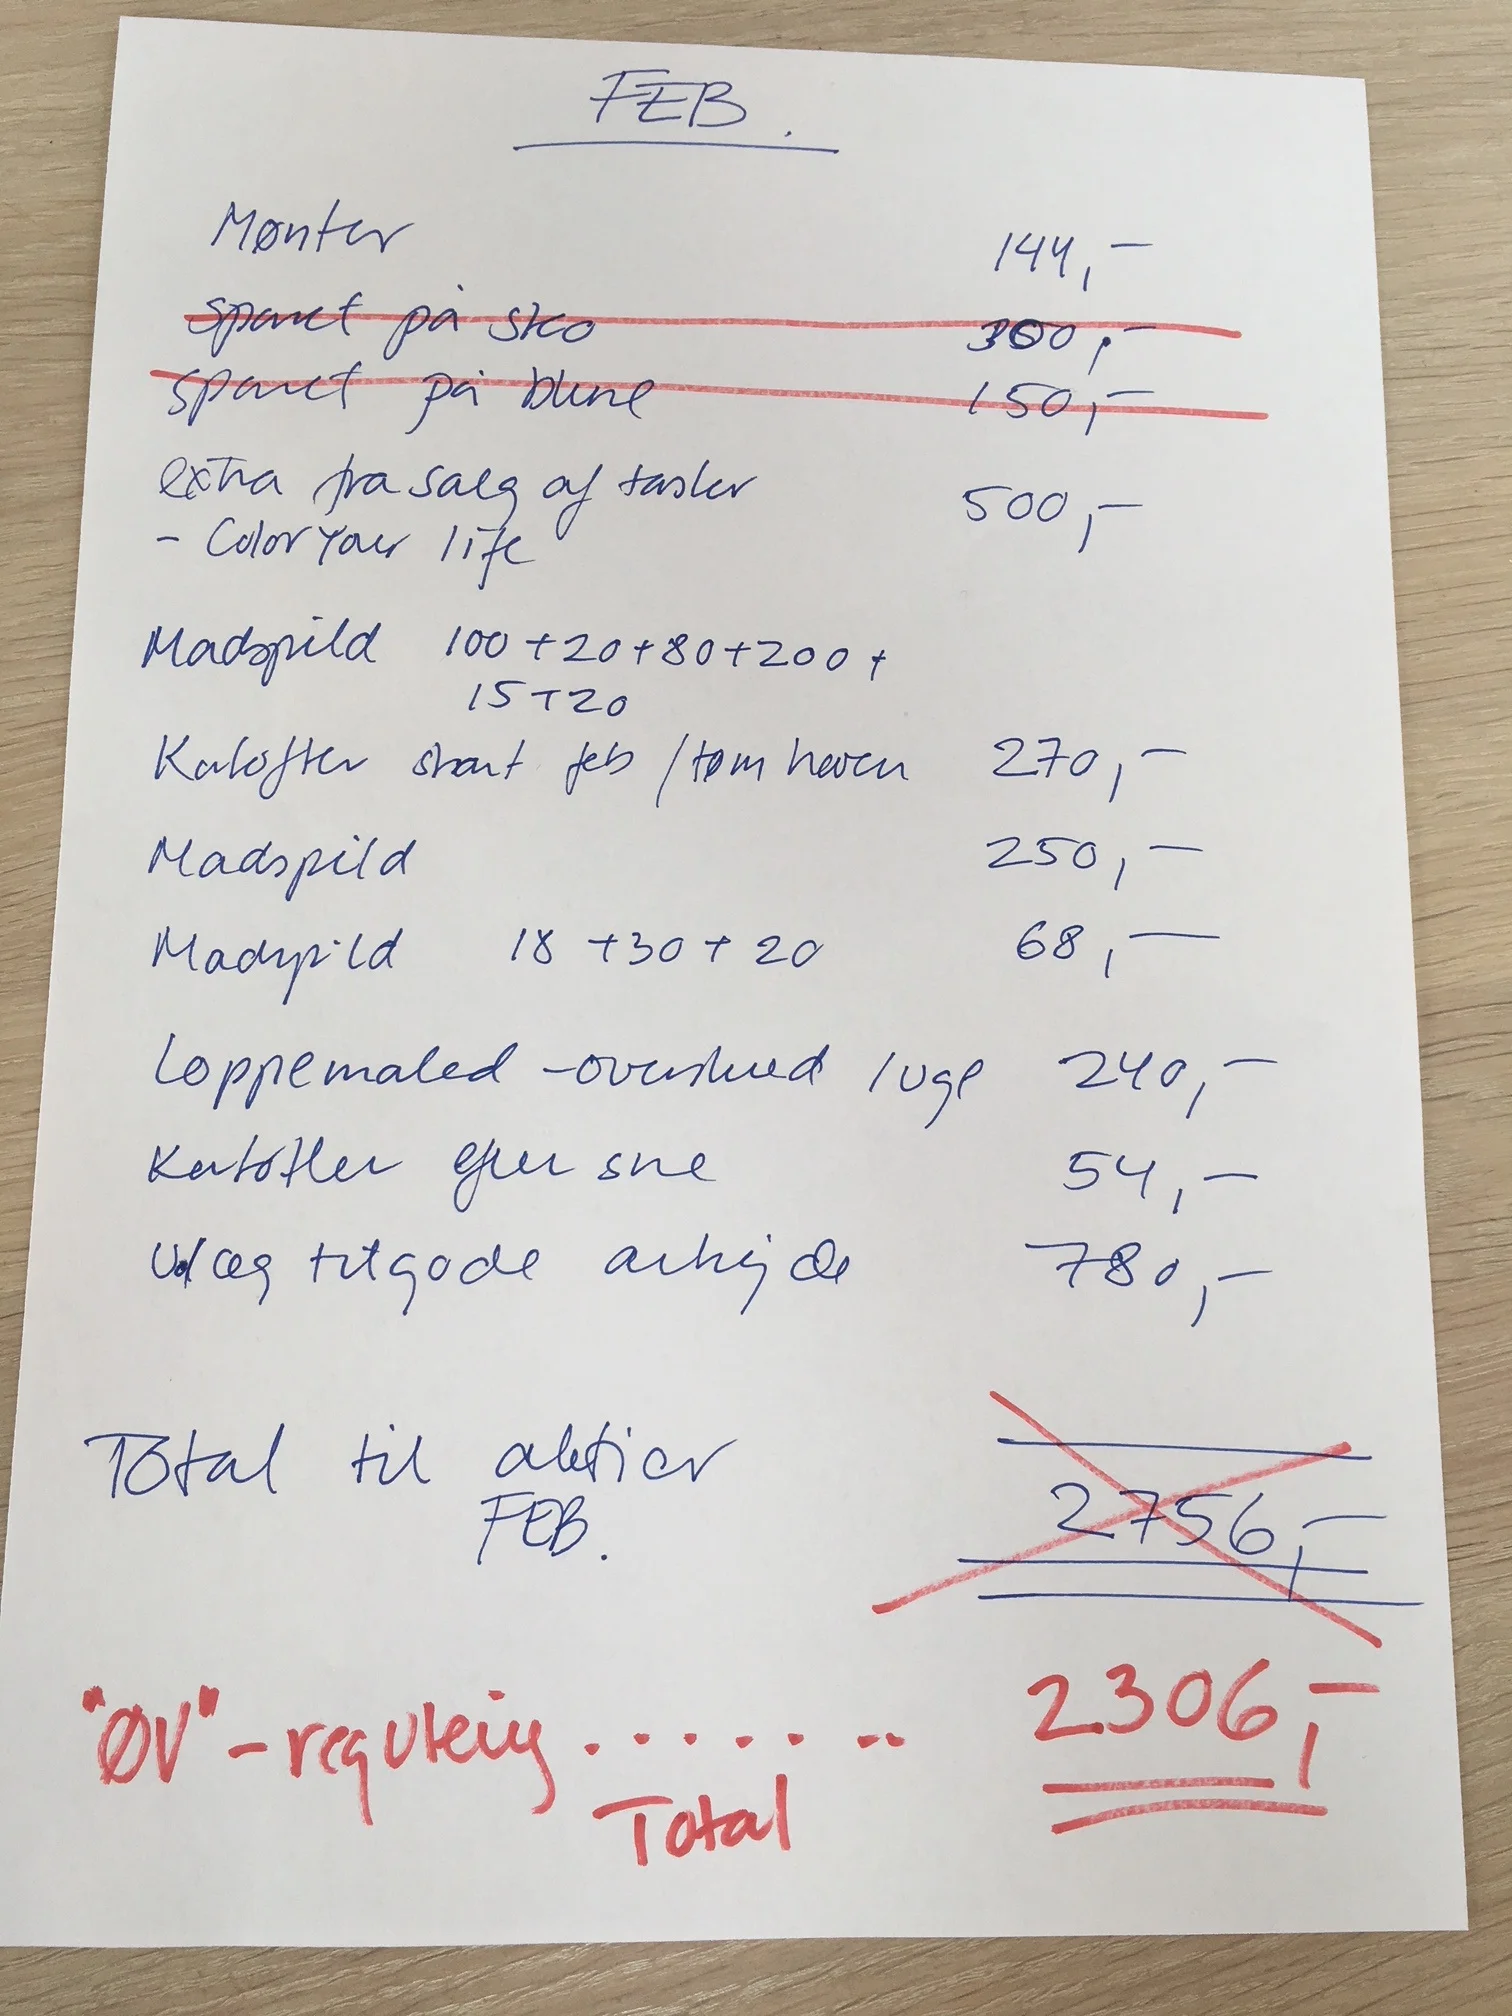 FEB.
Mønter 144,-
sparet på sko 300,-
sparet på bluse 150,-
extra fra salg af tasker 500,-
- Color Your life
Madspild 100+20+80+200+
15+20
Kartofler start feb / tøm haven 270,-
Madspild 250,-
Madspild 18+30+20 68,-
Loppemarked -overskud 1 uge 240,-
Kartofler efter sne 54,-
Udlæg tilgode arbejde 780,-
Total til aktier 2756,-
FEB.
"ØV"-regulering ........ 2306,-
Total